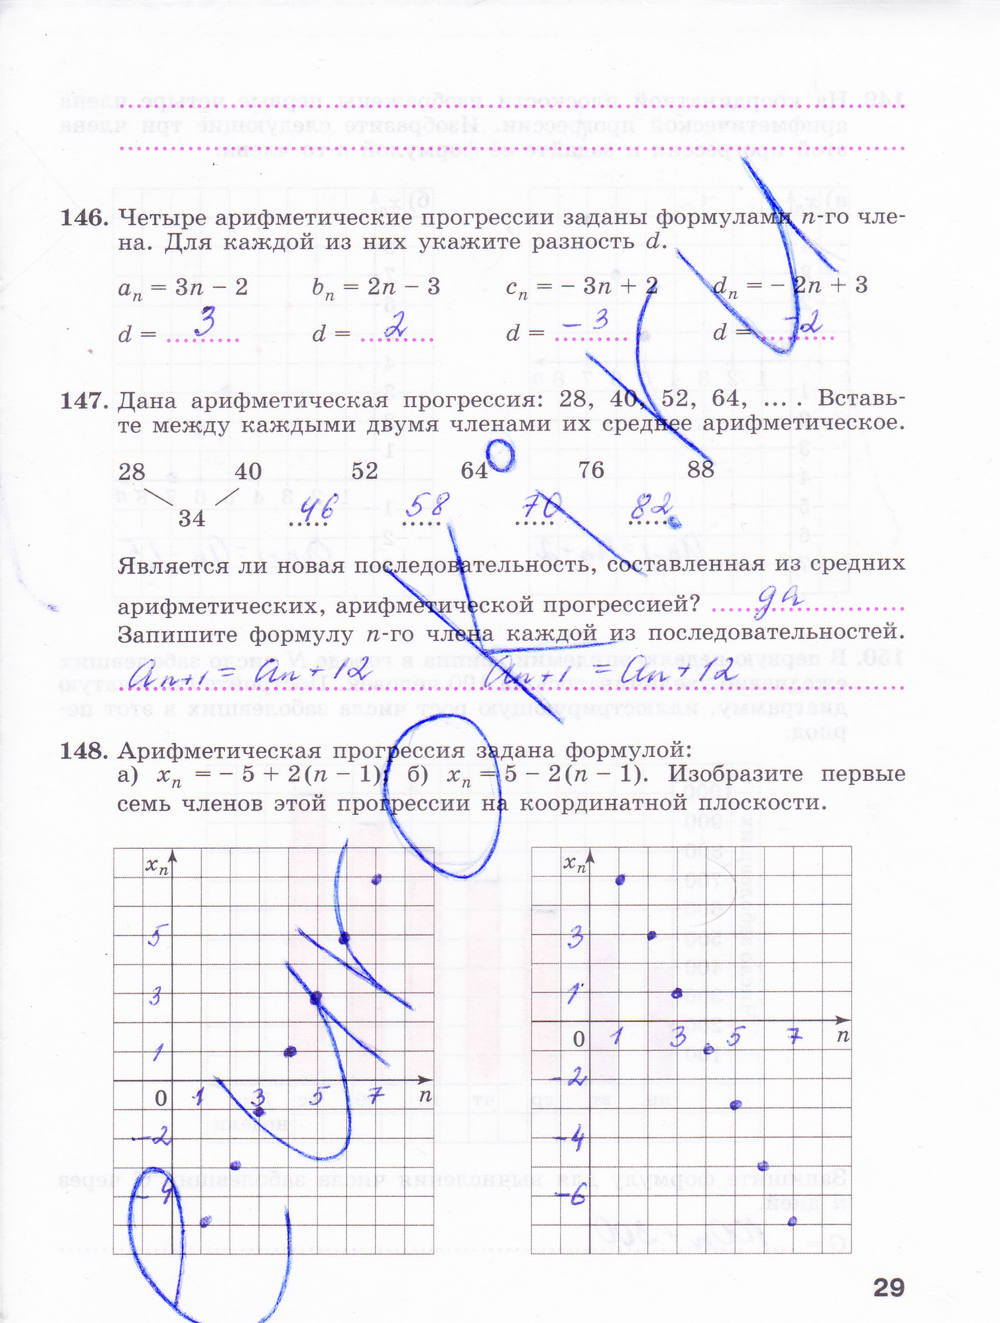 146. Четыре арифметические прогрессии заданы формулами n-го чле-
на. Для каждой из них укажите разность d.
aₙ = 3n − 2 bₙ = 2n − 3 cₙ = − 3n + 2 dₙ = − 2n + 3
d = 3 d = 2 d = −3 d = −2
147. Дана арифметическая прогрессия: 28, 40, 52, 64, ... . Вставь-
те между каждыми двумя членами их среднее арифметическое.
28 40 52 64 76 88
34 46 58 70 82
Является ли новая последовательность, составленная из средних
арифметических, арифметической прогрессией? да
Запишите формулу n-го члена каждой из последовательностей.
aₙ₊₁ = aₙ + 12 aₙ₊₁ = aₙ + 12
148. Арифметическая прогрессия задана формулой:
а) xₙ = − 5 + 2(n − 1); б) xₙ = 5 − 2(n − 1). Изобразите первые
семь членов этой прогрессии на координатной плоскости.
xₙ
5
3
1
0 1 3 5 7 n
−2
−4
xₙ
3
1
0 1 3 5 7 n
−2
−4
−6
29